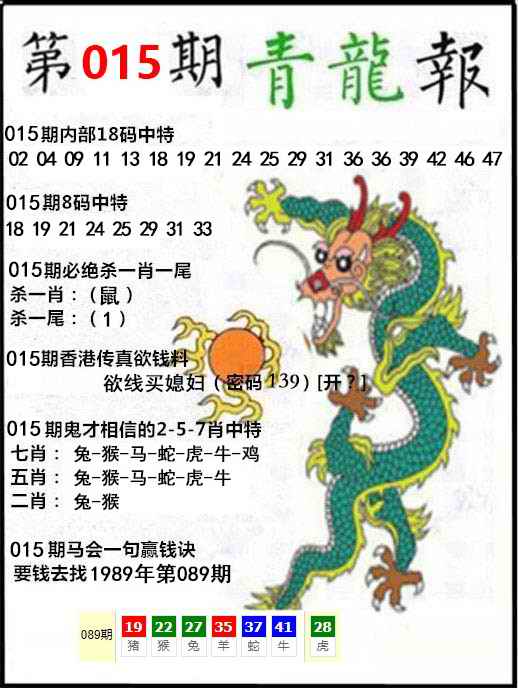 第015期青龍報
015期内部18码中特
02 04 09 11 13 18 19 21 24 25 29 31 36 36 39 42 46 47
015期8码中特
18 19 21 24 25 29 31 33
015期必绝杀一肖一尾
杀一肖：（鼠）
杀一尾：（1）
015期香港传真欲钱料
欲线买媳妇（密码139）[开？]
015期鬼才相信的2-5-7肖中特
七肖：兔-猴-马-蛇-虎-牛-鸡
五肖：兔-猴-马-蛇-虎-牛
二肖：兔-猴
015期马会一句赢钱诀
要钱去找1989年第089期
089期 19 22 27 35 37 41 28
猪 猴 兔 羊 蛇 牛 虎